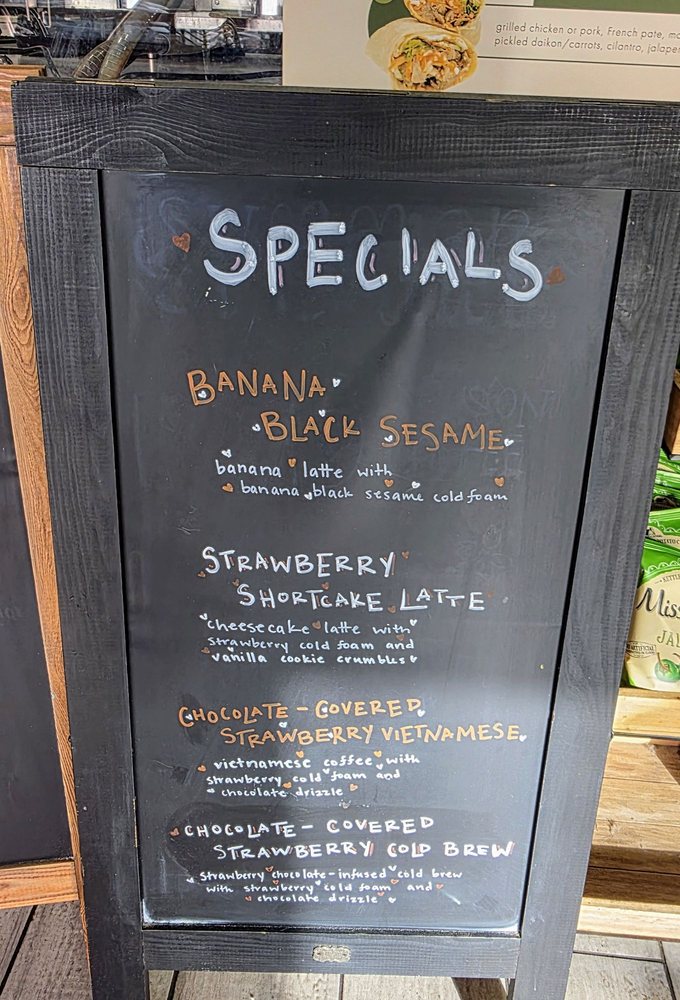 grilled chicken or pork, French pate,
pickled daikon/carrots, cilantro,
SPECIALS
BANANA
BLACK SESAME
banana latte with
banana black sesame cold foam
STRAWBERRY
SHORTCAKE LATTE
cheesecake latte with
strawberry cold foam and
vanilla cookie crumbles
CHOCOLATE-COVERED
STRAWBERRY VIETNAMESE
vietnamese coffee with
strawberry cold foam and
chocolate drizzle
CHOCOLATE-COVERED
STRAWBERRY COLD BREW
strawberry chocolate-infused cold brew
with strawberry cold foam and
chocolate drizzle
KETTL
Miss
JAL